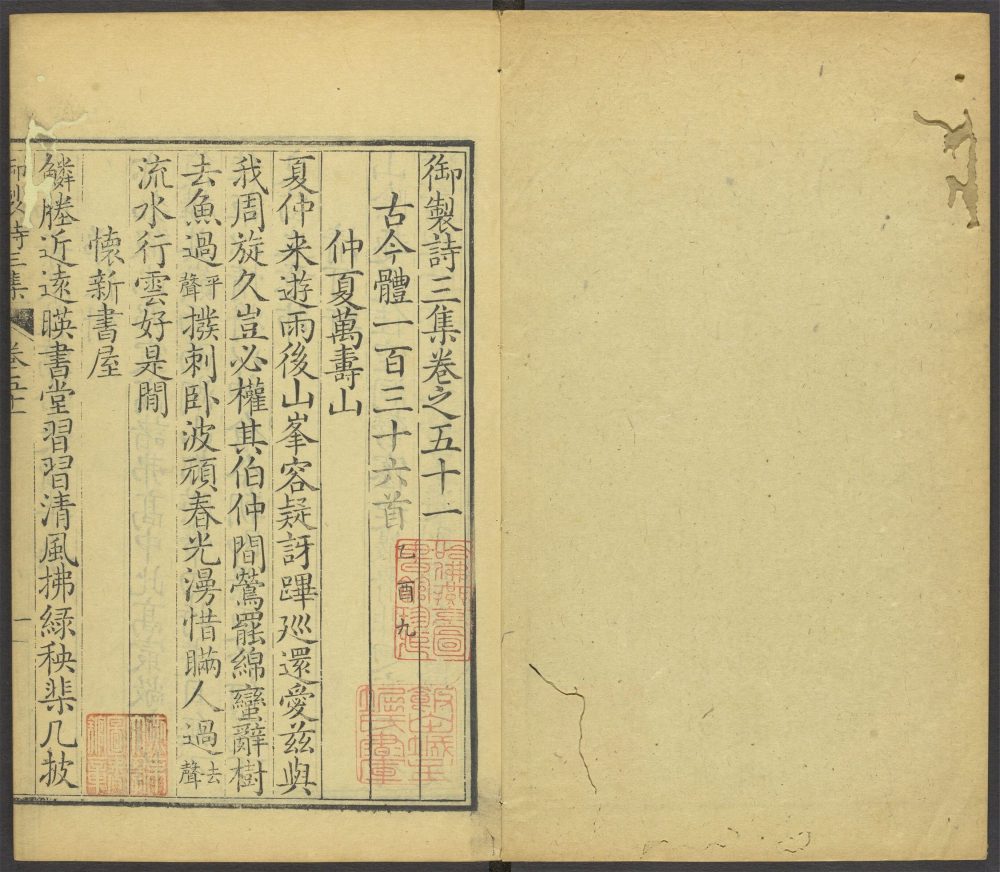 御製詩三集卷之五十一
古今體一百三十六首 乙酉九
仲夏萬壽山
夏仲来遊雨後山峯容疑訝蹕廵還愛兹與
我周旋久豈必權其伯仲間鶯罷綿蠻辭樹
去魚過平聲撥刺卧波頑春光漫惜瞞人過去聲
流水行雲好是閒
懐新書屋
鱗塍近遠暎書堂習習清風拂緑秧棐几披
御製詩三集 卷五十一 一